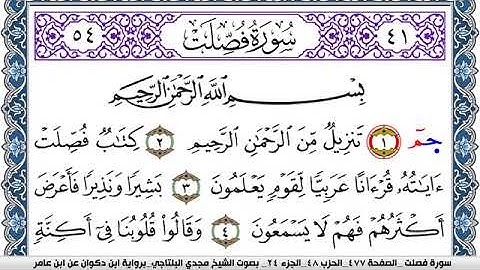 ٤١ سُورَةُ فُصِّلَتْ ٥٤
بِسْمِ اللَّهِ الرَّحْمَٰنِ الرَّحِيمِ
حمٓ ١ تَنزِيلٌ مِّنَ الرَّحْمَٰنِ الرَّحِيمِ ٢ كِتَابٌ فُصِّلَتْ
ءَايَاتُهُۥ قُرْءَانًا عَرَبِيًّا لِّقَوْمٍ يَعْلَمُونَ ٣ بَشِيرًا وَنَذِيرًا فَأَعْرَضَ
أَكْثَرُهُمْ فَهُمْ لَا يَسْمَعُونَ ٤ وَقَالُوا قُلُوبُنَا فِىٓ أَكِنَّةٍ
سورة فصلت _الصفحة ٤٧٧_ الحزب ٤٨_الجزء ٢٤_ بصوت الشيخ مجدي البلتاجي_برواية ابن ذكوان عن ابن عامر